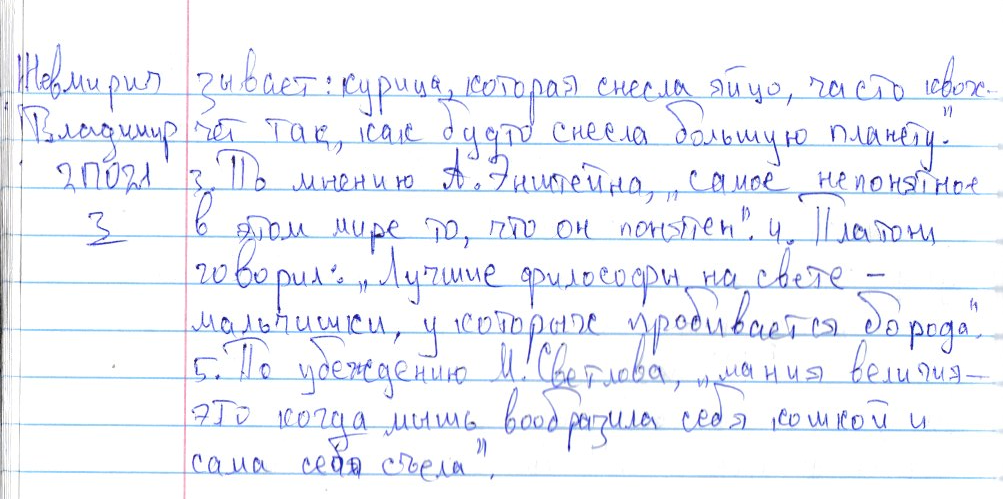 Жевмирич
Владимир
2П021
3
зывает: курица, которая снесла яйцо, часто квох-
чет так, как будто снесла большую планету."
3. По мнению А. Энштейна, „самое непонятное
в этом мире то, что он понятен". 4. Платон
говорил: „Лучшие философы на свете –
мальчишки, у которых пробивается борода".
5. По убеждению М. Светлова, „мания величия –
это когда мышь вообразила себя кошкой и
сама себя съела".